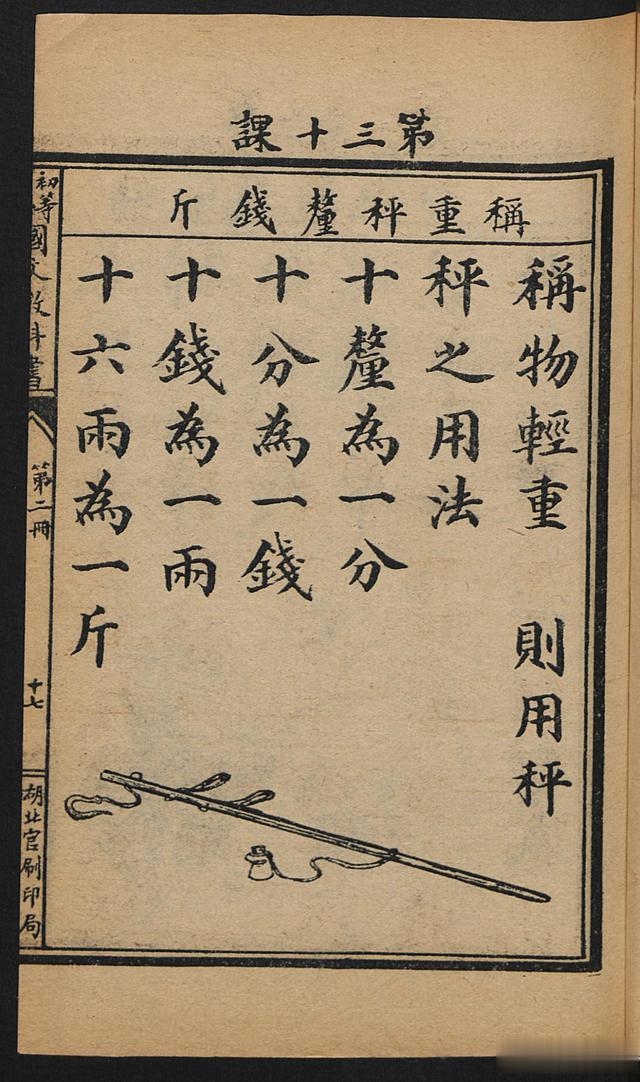 第三十課
稱重秤釐錢斤
稱物輕重 則用秤
秤之用法
十釐為一分
十分為一錢
十錢為一兩
十六兩為一斤
初等國文教科書
第二冊
十七
湖北官刷印局